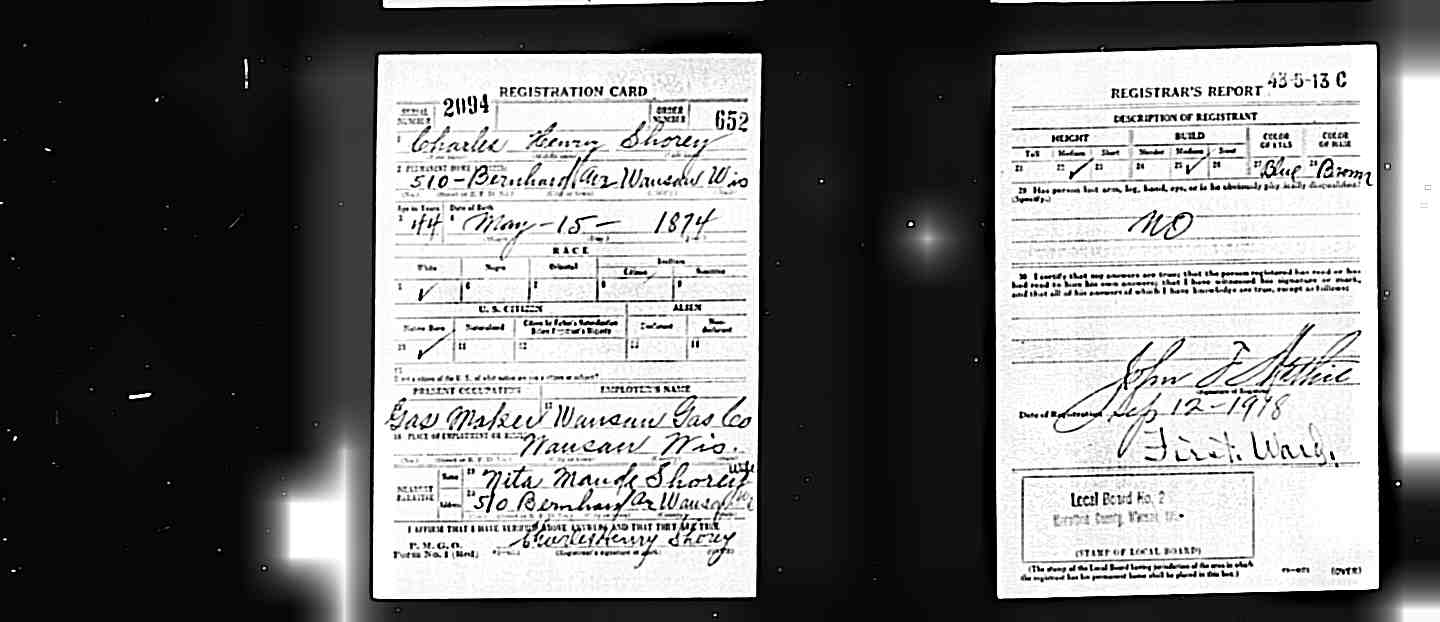 REGISTRATION CARD
SERIAL NUMBER 2094 ORDER NUMBER 652
1 Charles Henry Shorey
2 PERMANENT HOME ADDRESS:
510 - Bernhard Av Wausau Wis
Age in Years Date of Birth
3 44 4 May - 15 - 1874
RACE
White Negro Oriental Indian
Citizen
5 ✓ 6 7 8 9
U. S. CITIZEN ALIEN
Native Born Naturalized Citizen by Father's Naturalization Before Registrant's Majority Declarant Non-declarant
10 ✓ 11 12 13 14
15
If not a citizen of the U. S., of what nation are you a citizen or subject?
PRESENT OCCUPATION EMPLOYER'S NAME
Gas Maker 17 Wausau Gas Co
18 PLACE OF EMPLOYMENT OR BUSINESS
Wausau Wis.
NEAREST RELATIVE Name 19 Nita Maude Shorey Wife
Address 20 510 Bernhard Av Wausau Wis
I AFFIRM THAT I HAVE VERIFIED ABOVE ANSWERS AND THAT THEY ARE TRUE
P. M. G. O.
Form No. 1 (Red) Charles Henry Shorey
(Registrant's signature or mark)
REGISTRAR'S REPORT 43-5-13 C
DESCRIPTION OF REGISTRANT
HEIGHT BUILD COLOR OF EYES COLOR OF HAIR
Tall Medium Short Slender Medium Stout
21 22 ✓ 23 24 25 ✓ 26 27 Blue 28 Brown
29 Has person lost arm, leg, hand, eye, or is he obviously physically disqualified?
(Specify.)
NO
30 I certify that my answers are true; that the person registered has read or has
had read to him his own answers; that I have witnessed his signature or mark,
and that all of his answers of which I have knowledge are true, except as follows:
John F
(Signature of Registrar)
Date of Registration Sep 12 - 1918
First Ward.
Local Board No. 2
County, Wausau, Wis.
(STAMP OF LOCAL BOARD)
(The stamp of the Local Board having jurisdiction of the area in which
the registrant has his permanent home shall be placed in this box.)
(OVER)